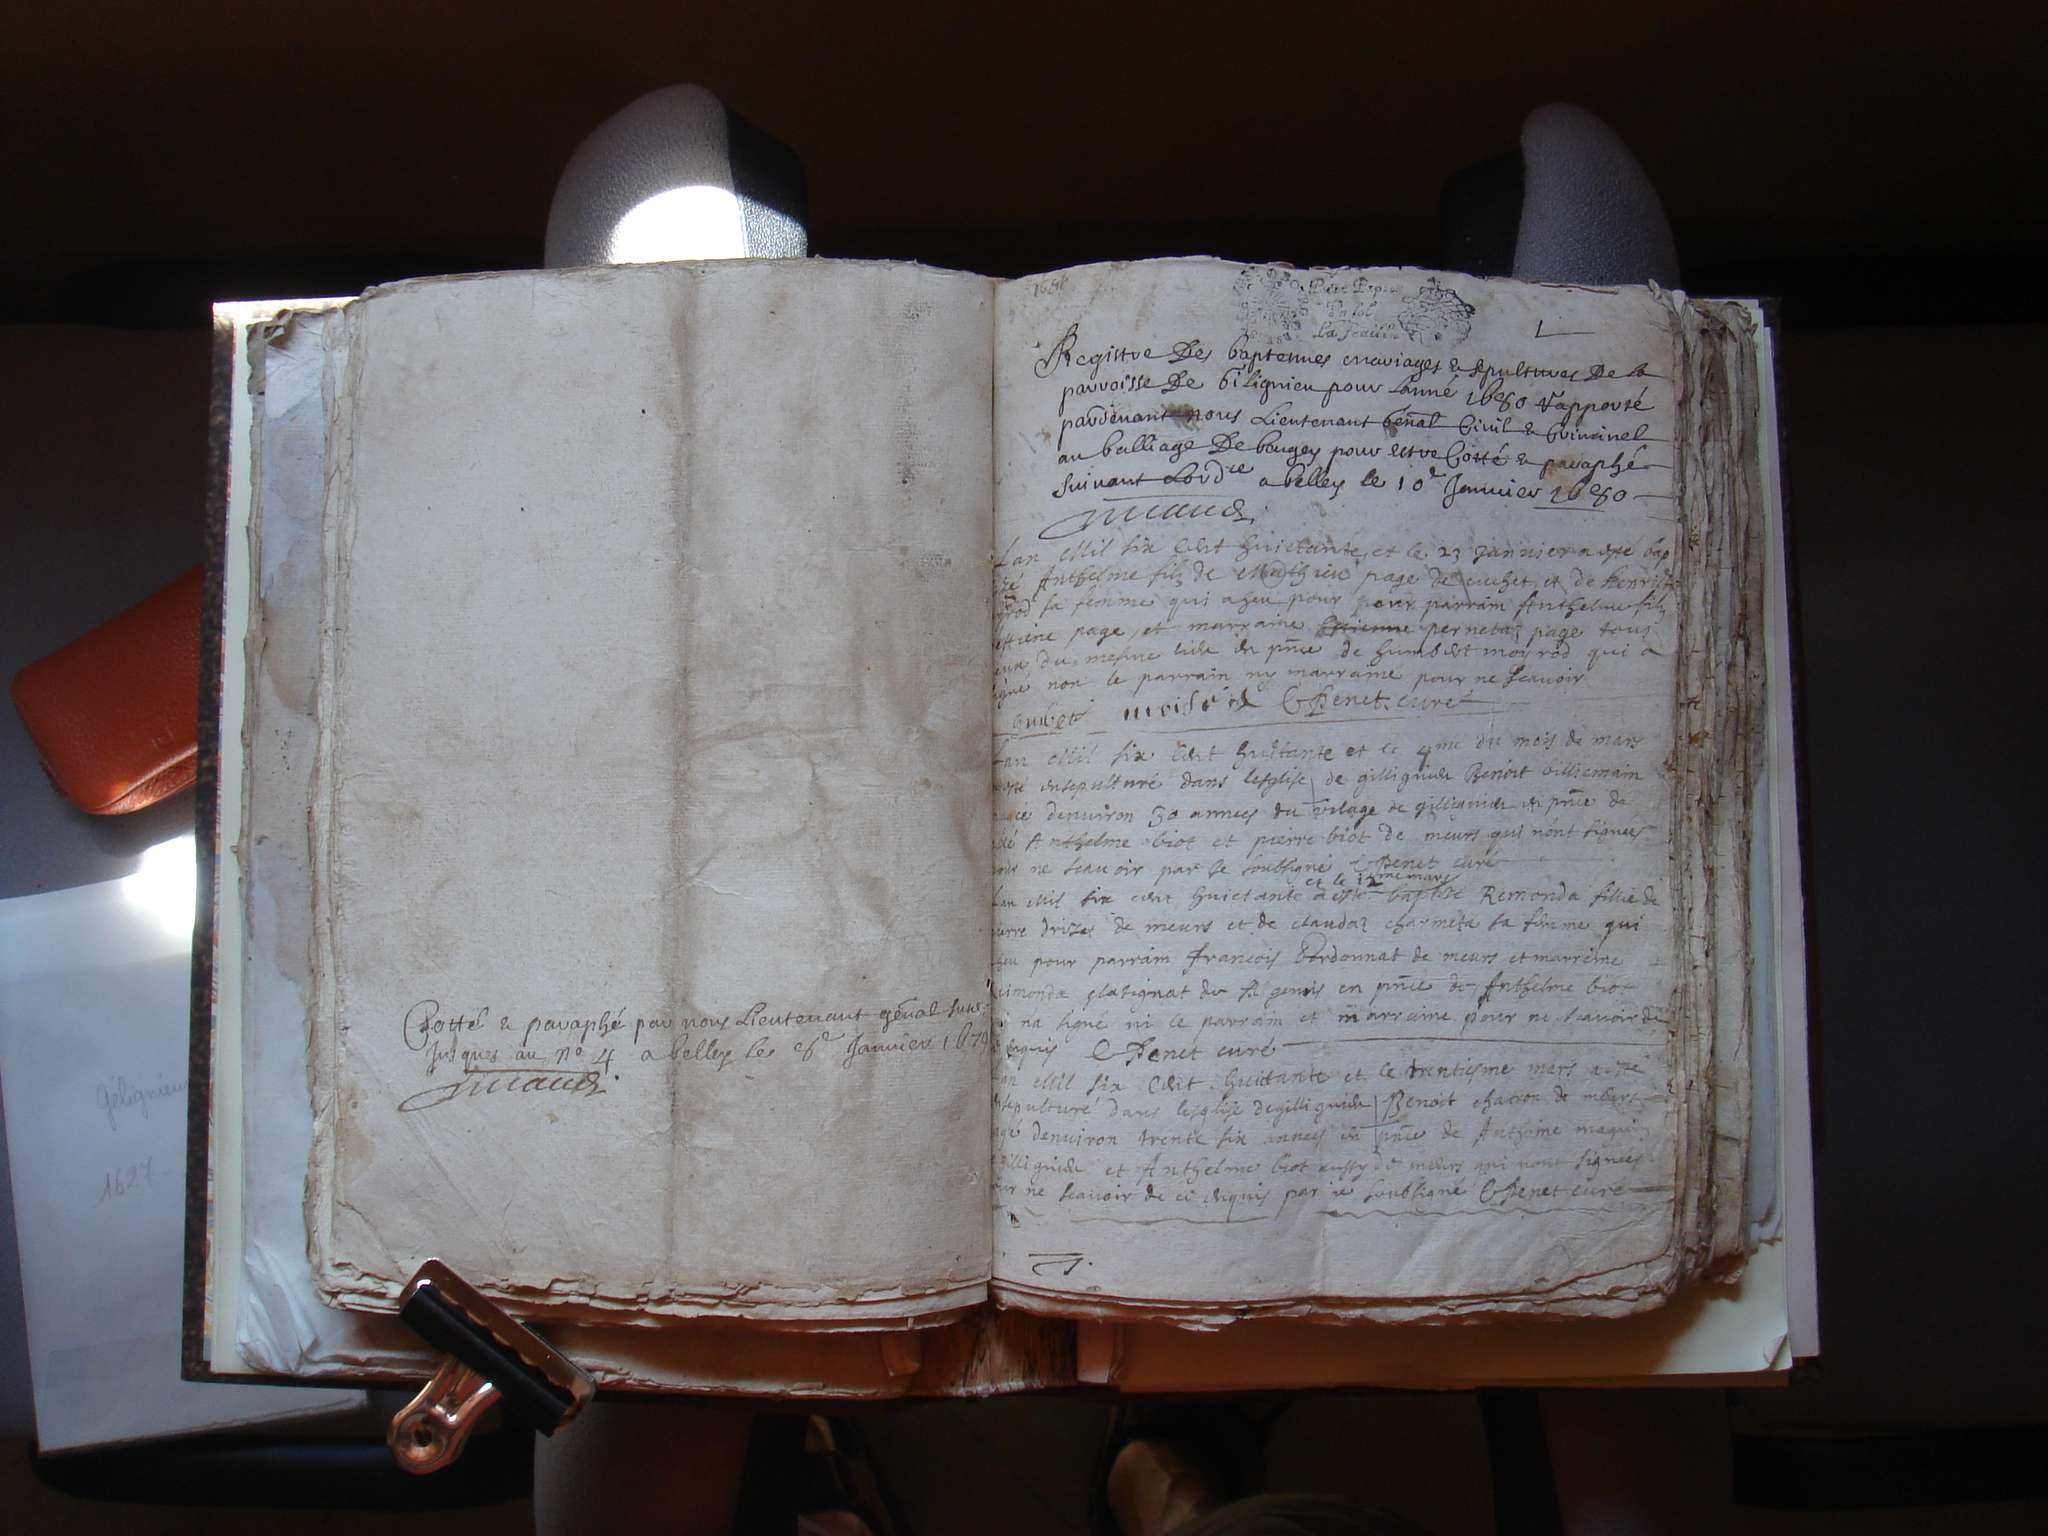 Cotté & paraphé par nous Lieutenant genāl
Jusques au n° 4 a belley le 8e Janvier 1679
Gélignieu
1627
1680
La feuille
Registre Des baptemes mariages & sepultures De la
parroisse De Gilignieu pour lanné 1680 rapporté
pardevant nous Lieutenant Genāl Civil & Criminel
au balliage De bougey pour estre Cotté & paraphé
suivant Lordce a belley le 10e Janvier 1680
Lan Mil six Cent huictante et le 23 janvier a esté bap
Anthelme filz de Mathieu page de cuchet, et de henrie
sa femme qui a heu pour pour parrain Anthelme filz
page, et marraine pernetaz page tous
du mesme lieu en pnce de humbert moisrod qui a
signé non le parrain ny marraine pour ne scavoir
moisrod C Benet curé
Lan Mil six Cent huictante et le 4me du mois de mars
esté ensepulturé dans lesglise de gillignieu Benoit billiemain
denviron 30 annees du vilage de gillignieu en pnce de
Anthelme biot et pierre biot de meurs qui nont signées
pour ne scavoir par le soubsigné C Benet curé
et le 12me mars
Lan Mil six cent huictante a esté baptisé Remonda fillie de
de meurs et de claudaz charmeta sa femme qui
heu pour parrain francois Bordonnat de meurs et marreine
du St genis en pnce de Anthelme biot
na signé ni le parrain et marraine pour ne scavoir de
enquis C Benet curé
Lan Mil six Cent huictante et le trentiesme mars a esté
ensepulturé dans lesglise de gillignieu Benoit chatron de meurs
agé denviron trente six annees en pnce de Anthoine
gillignieu et Anthelme biot aussy de meurs qui nont signées
pour ne scavoir de ci enquis par ie soubsigné C Benet curé